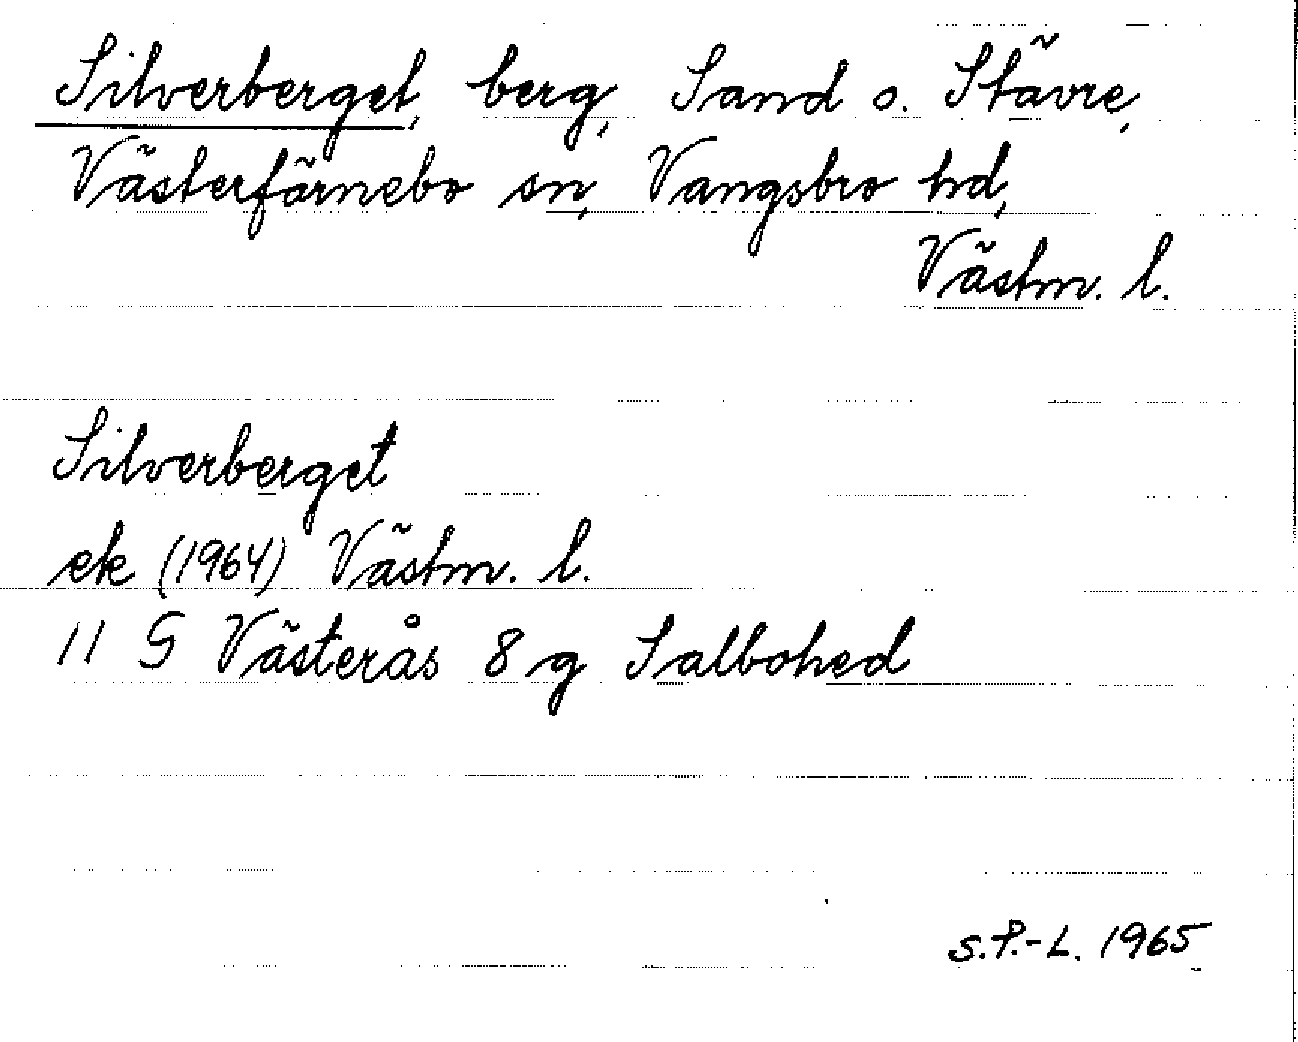 Silverberget, berg, Sand o. Stävre,
Västerfärnebo sn, Vangsbro hd,
Västm. l.
Silverberget
ek (1964) Västm. l.
11 G Västerås 8 g Salbohed
S.P.-L. 1965